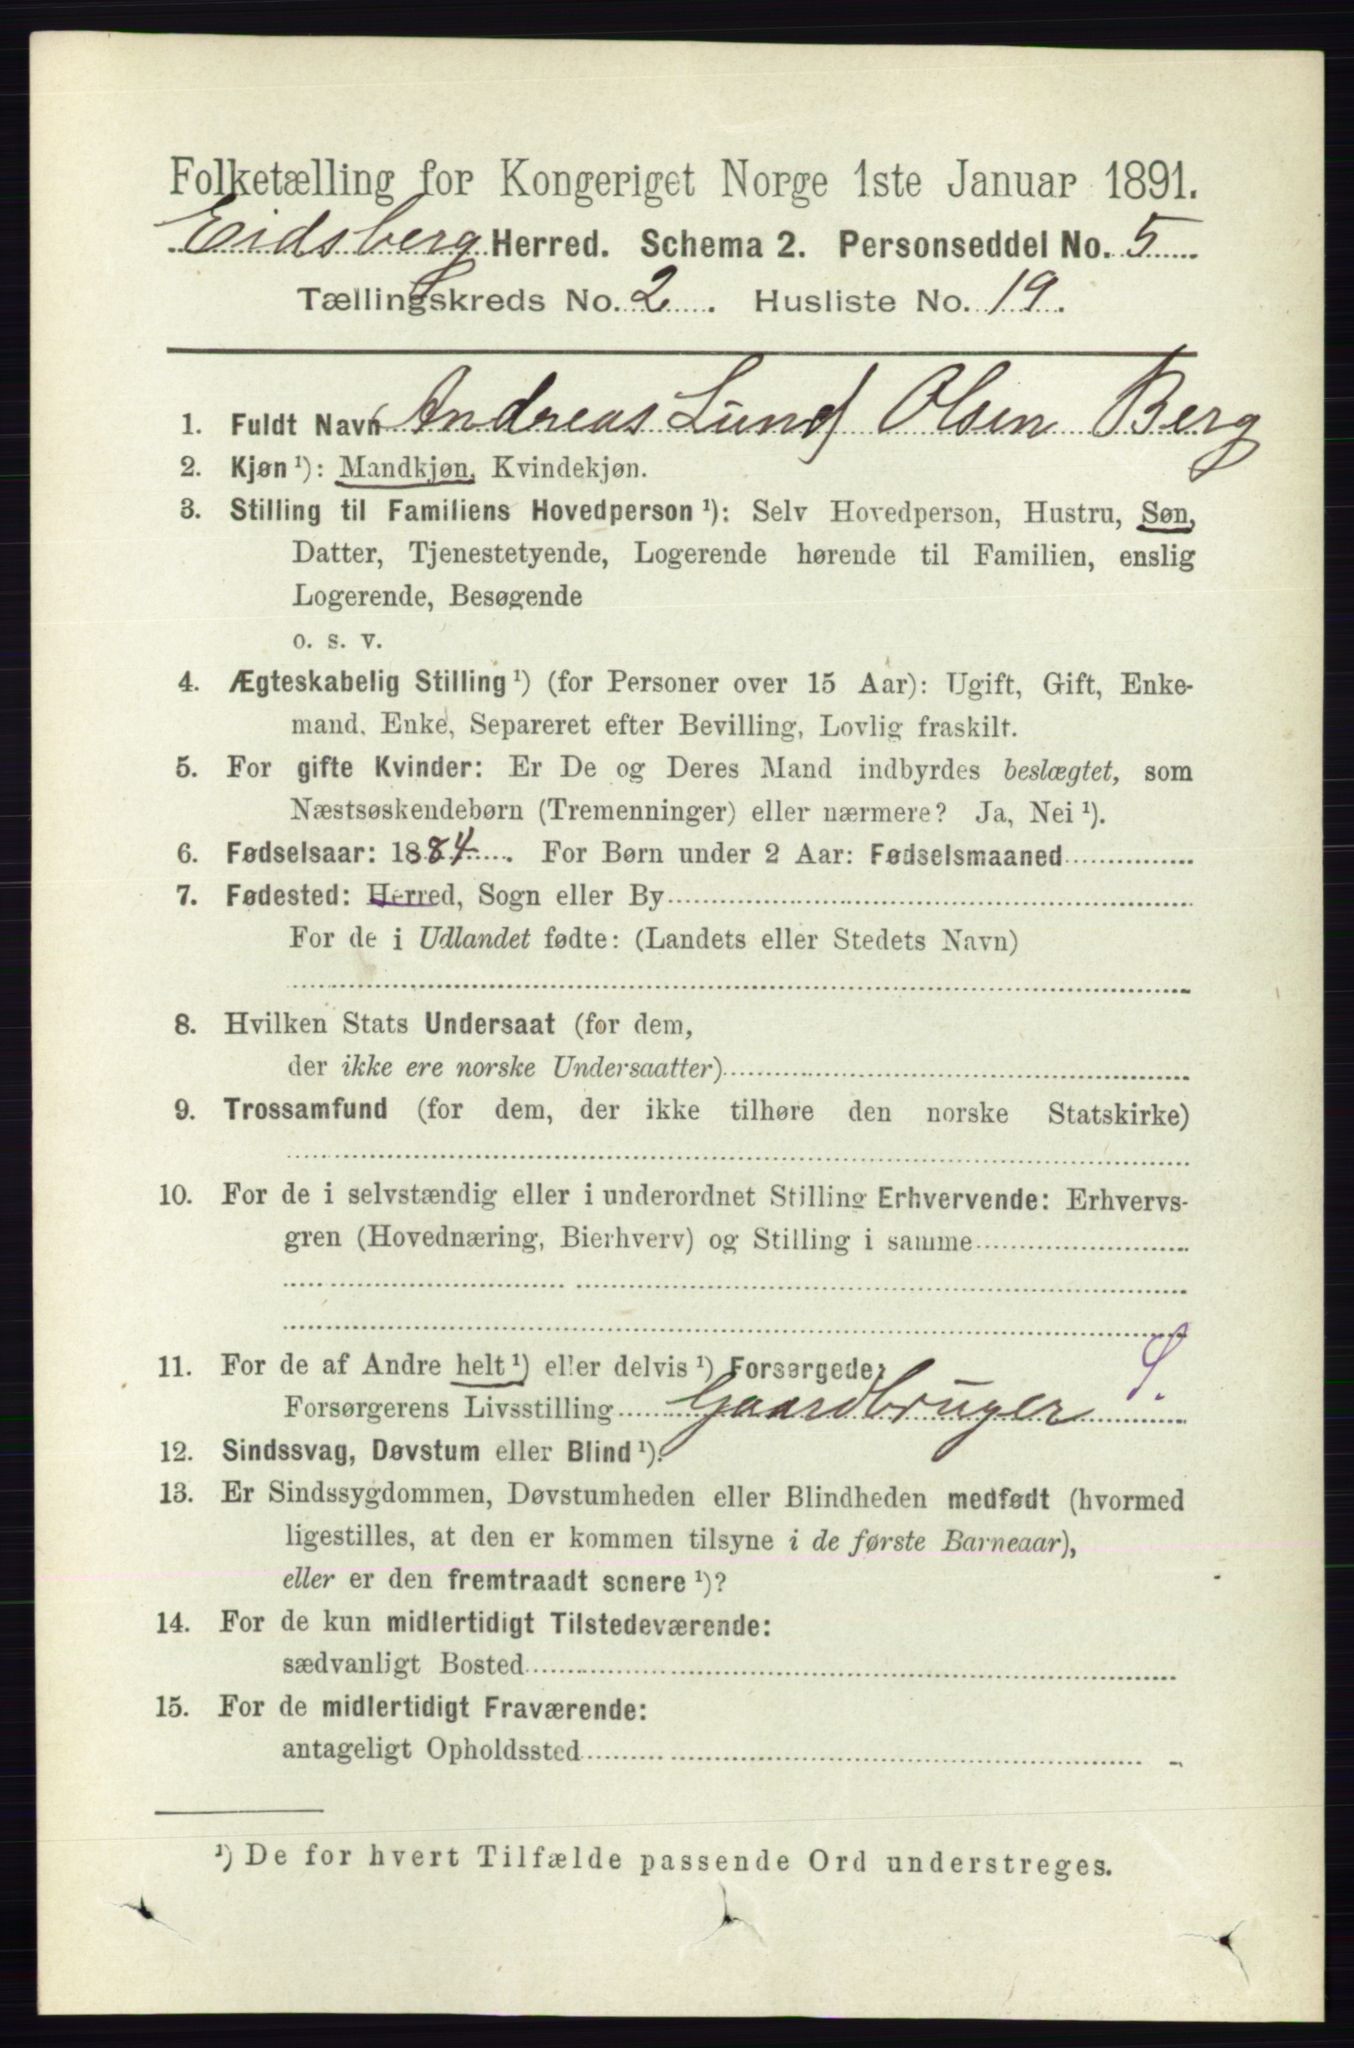 Folketælling for Kongeriget Norge 1ste Januar 1891.
Eidsberg Herred. Schema 2. Personseddel No. 5
Tællingskreds No. 2. Husliste No. 19.
1. Fuldt Navn Andreas Lund Olsen Berg
2. Kjøn ¹): Mandkjøn, Kvindekjøn.
3. Stilling til Familiens Hovedperson ¹): Selv Hovedperson, Hustru, Søn,
Datter, Tjenestetyende, Logerende hørende til Familien, enslig
Logerende, Besøgende
o. s. v.
4. Ægteskabelig Stilling ¹) (for Personer over 15 Aar): Ugift, Gift, Enke-
mand, Enke, Separeret efter Bevilling, Lovlig fraskilt.
5. For gifte Kvinder: Er De og Deres Mand indbyrdes beslægtet, som
Næstsøskendebørn (Tremenninger) eller nærmere? Ja, Nei ¹).
6. Fødselsaar: 1884. For Børn under 2 Aar: Fødselsmaaned
7. Fødested: Herred, Sogn eller By
For de i Udlandet fødte: (Landets eller Stedets Navn)
8. Hvilken Stats Undersaat (for dem,
der ikke ere norske Undersaatter)
9. Trossamfund (for dem, der ikke tilhøre den norske Statskirke)
10. For de i selvstændig eller i underordnet Stilling Erhvervende: Erhvervs-
gren (Hovednæring, Bierhverv) og Stilling i samme
11. For de af Andre helt ¹) eller delvis ¹) Forsørgede:
Forsørgerens Livsstilling Gaardbruger
12. Sindssvag, Døvstum eller Blind ¹).
13. Er Sindssygdommen, Døvstumheden eller Blindheden medfødt (hvormed
ligestilles, at den er kommen tilsyne i de første Barneaar),
eller er den fremtraadt senere ¹)?
14. For de kun midlertidigt Tilstedeværende:
sædvanligt Bosted
15. For de midlertidigt Fraværende:
antageligt Opholdssted
¹) De for hvert Tilfælde passende Ord understreges.